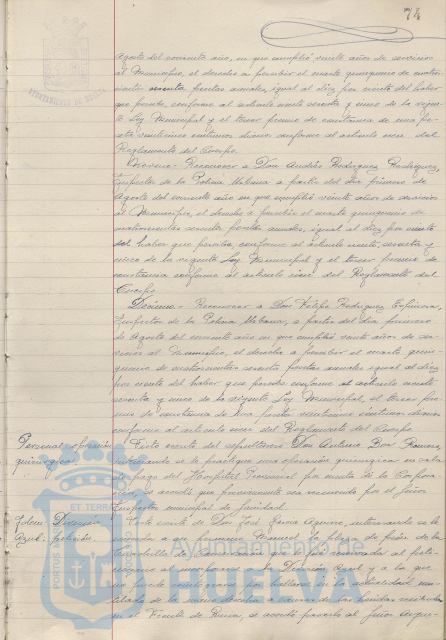 74
AYUNTAMIENTO DE HUELVA
Agosto del corriente año, en que cumplió veinte años de servicios
al Municipio, el derecho a percibir el cuarto quinquenio de cuatro-
cientas sesenta pesetas anuales, igual al diez por ciento del haber
que percibe, conforme al artículo ciento sesenta y cinco de la vigen-
te Ley Municipal y el tercer premio de constancia de una pe-
seta veinticinco céntimos diarios conforme al artículo once del
Reglamento del Cuerpo.
Noveno.- Reconocer a Don Andrés Rodríguez Rodríguez,
Inspector de la Policía Urbana a partir del día primero de
Agosto del corriente año en que cumplió veinte años de servicios
al Municipio, el derecho a percibir el cuarto quinquenio de
cuatrocientas sesenta pesetas anuales, igual al diez por ciento
del haber que percibe, conforme al artículo ciento sesenta y
cinco de la vigente Ley Municipal y el tercer premio de
constancia conforme al artículo once del Reglamento del
Cuerpo.
Décimo.- Reconocer a Don Felipe Rodríguez Espinosa,
Inspector de la Policía Urbana, a partir del día primero
de Agosto del corriente año en que cumplió veinte años de ser-
vicios al Municipio, el derecho a percibir el cuarto quin-
quenio de cuatrocientas sesenta pesetas anuales igual al diez
por ciento del haber que percibe conforme al artículo ciento
sesenta y cinco de la vigente Ley Municipal, el tercer pre-
mio de constancia de una peseta veinticinco céntimos diarios
conforme al artículo once del Reglamento del Cuerpo
Personal operación
quirúrgica
Visto escrito del sepulturero Don Antonio
interesando se le practique una operación quirúrgica en
del Hospital Provincial por cuenta de la Corpora-
ción, se acordó que previamente sea reconocido por el Señor
Inspector municipal de Sanidad.
División
Azul. petición
Visto escrito de Don José García interesando se le
a su hermano Manuel la plaza de peón de la
que le fue reservada al
a la División Azul y a la que
en la actualidad
de la mano derecha a causa de las heridas recibidas
en el Frente de Rusia, se acordó pasarlo al Señor
PORTUS
ET TERRAE
Ayuntamiento de
HUELVA